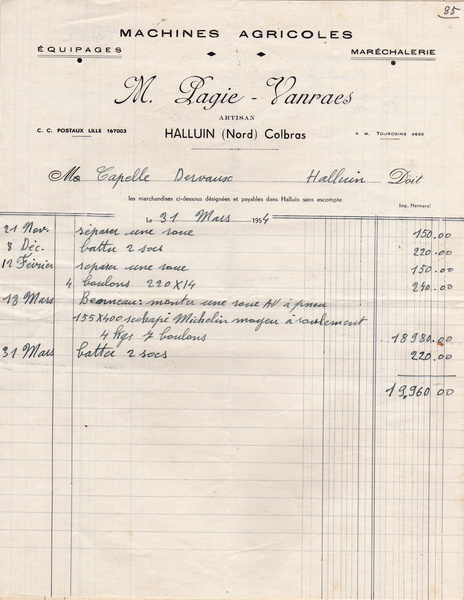 85
MACHINES AGRICOLES
ÉQUIPAGES
MARÉCHALERIE
M. Pagie - Vanraes
ARTISAN
C. C. POSTAUX LILLE 167003
HALLUIN (Nord) Colbras
R. M. TOURCOING 4894
M Capelle Dervaux Halluin Doit
les marchandises ci-dessous désignées et payables dans Halluin sans escompte
Imp. Hermans
Le 31 Mars 1954
21 Nov. réparer une roue 150.00
8 Déc. battu 2 socs 220.00
12 Février reparer une roue 150.00
4 boulons 220X14 240.00
13 Mars monter une roue AV à pneu
155X400 rechapé Michelin moyeu à roulement
4 kgs 7 boulons 18980.00
31 Mars battu 2 socs 220.00
19,960.00